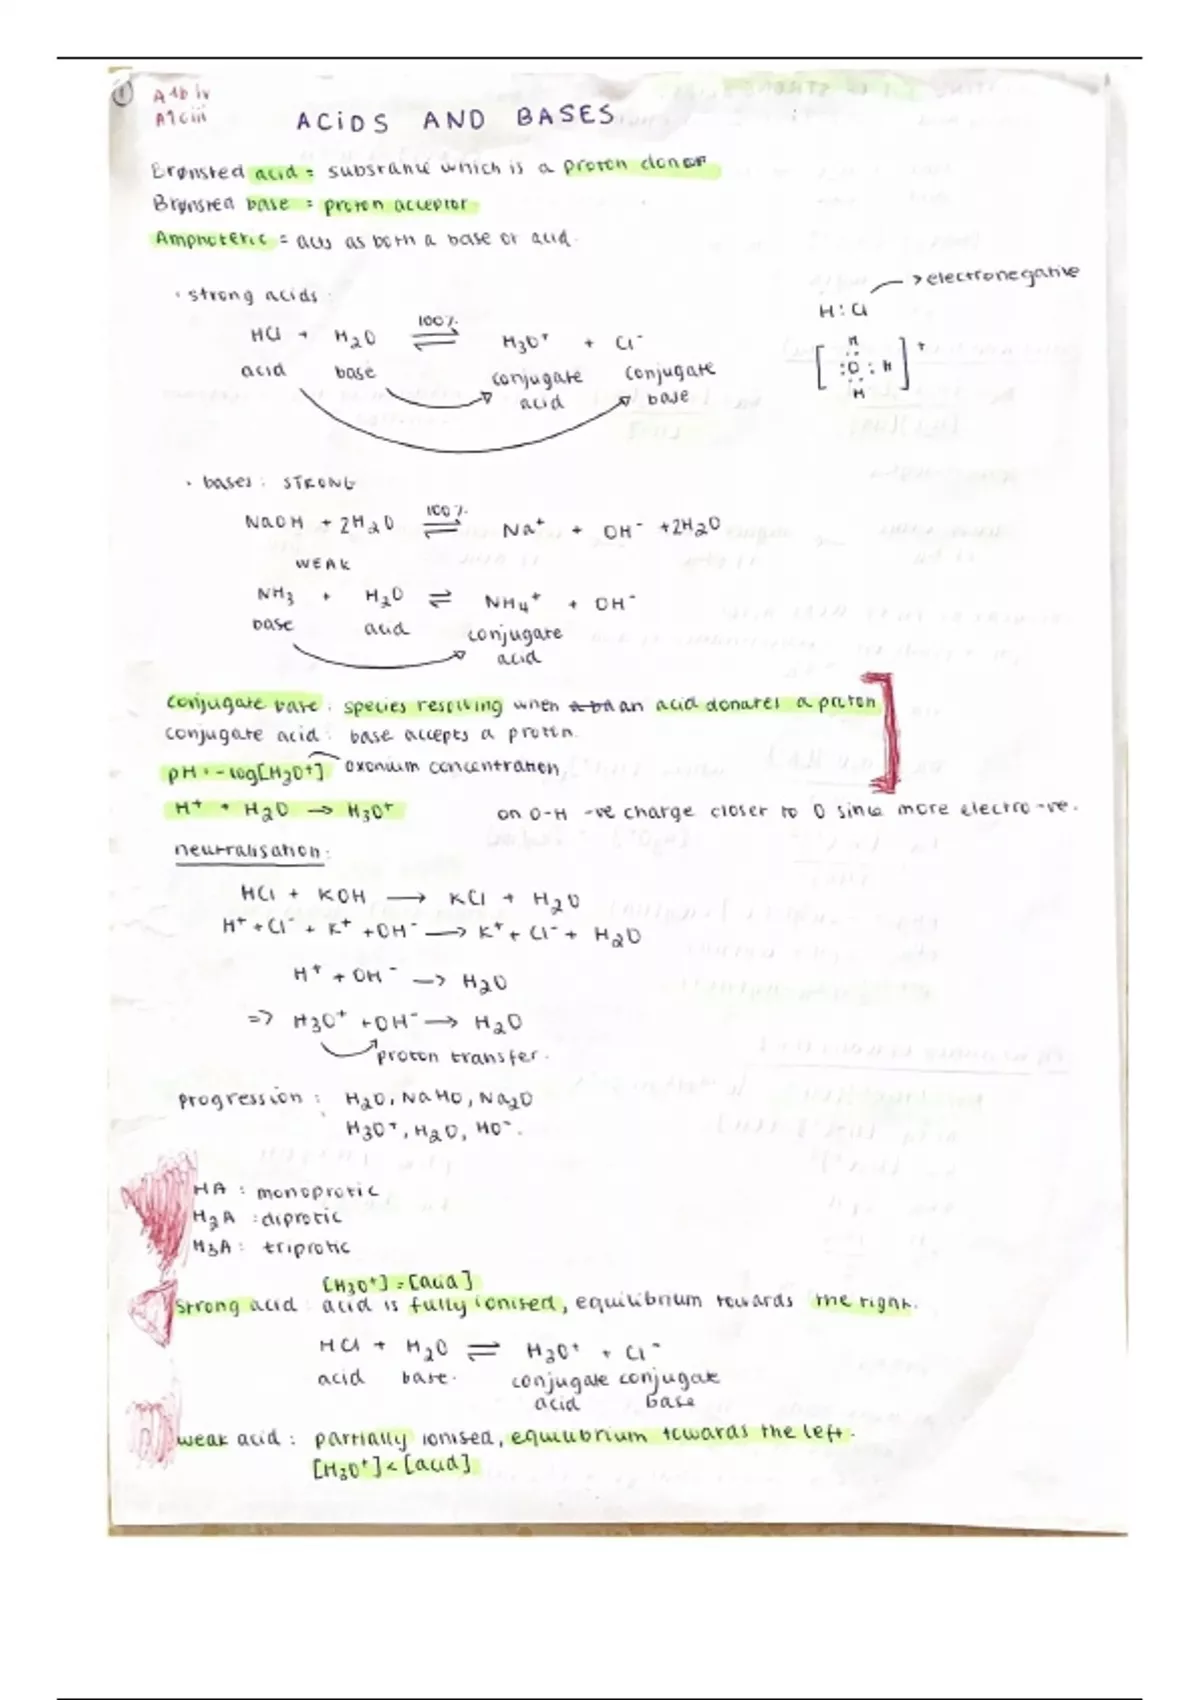 1
A1b iv
A1ciii
ACIDS AND BASES
Brønsted acid = substance which is a proton donor
Brønsted base = proton acceptor
Amphoteric = acts as both a base or acid.
· strong acids:
→ electronegative
H:Cl
HCl + H2O ⇌ 100% H3O+ + Cl-
acid base conjugate acid conjugate base
[H :O: H H]+
· bases: STRONG
NaOH + 2H2O ⇌ 100% Na+ + OH- +2H2O
WEAK
NH3 + H2O ⇌ NH4+ + OH-
base acid conjugate acid
conjugate base: species resulting when an acid donates a proton
conjugate acid: base accepts a proton.
pH = -log[H3O+] oxonium concentration
H+ + H2O → H3O+ on O-H -ve charge closer to O since more electro-ve.
neutralisation:
HCl + KOH → KCl + H2O
H+ + Cl- + K+ + OH- → K+ + Cl- + H2O
H+ + OH- → H2O
=> H3O+ + OH- → H2O
proton transfer.
progression: H2O, NaHO, Na2O
H3O+, H2O, HO-.
HA: monoprotic
H2A: diprotic
H3A: triprotic
[H3O+] = [acid]
strong acid: acid is fully ionised, equilibrium towards the right.
HCl + H2O ⇌ H3O+ + Cl-
acid base. conjugate acid conjugate base
weak acid: partially ionised, equilibrium towards the left.
[H3O+] < [acid]